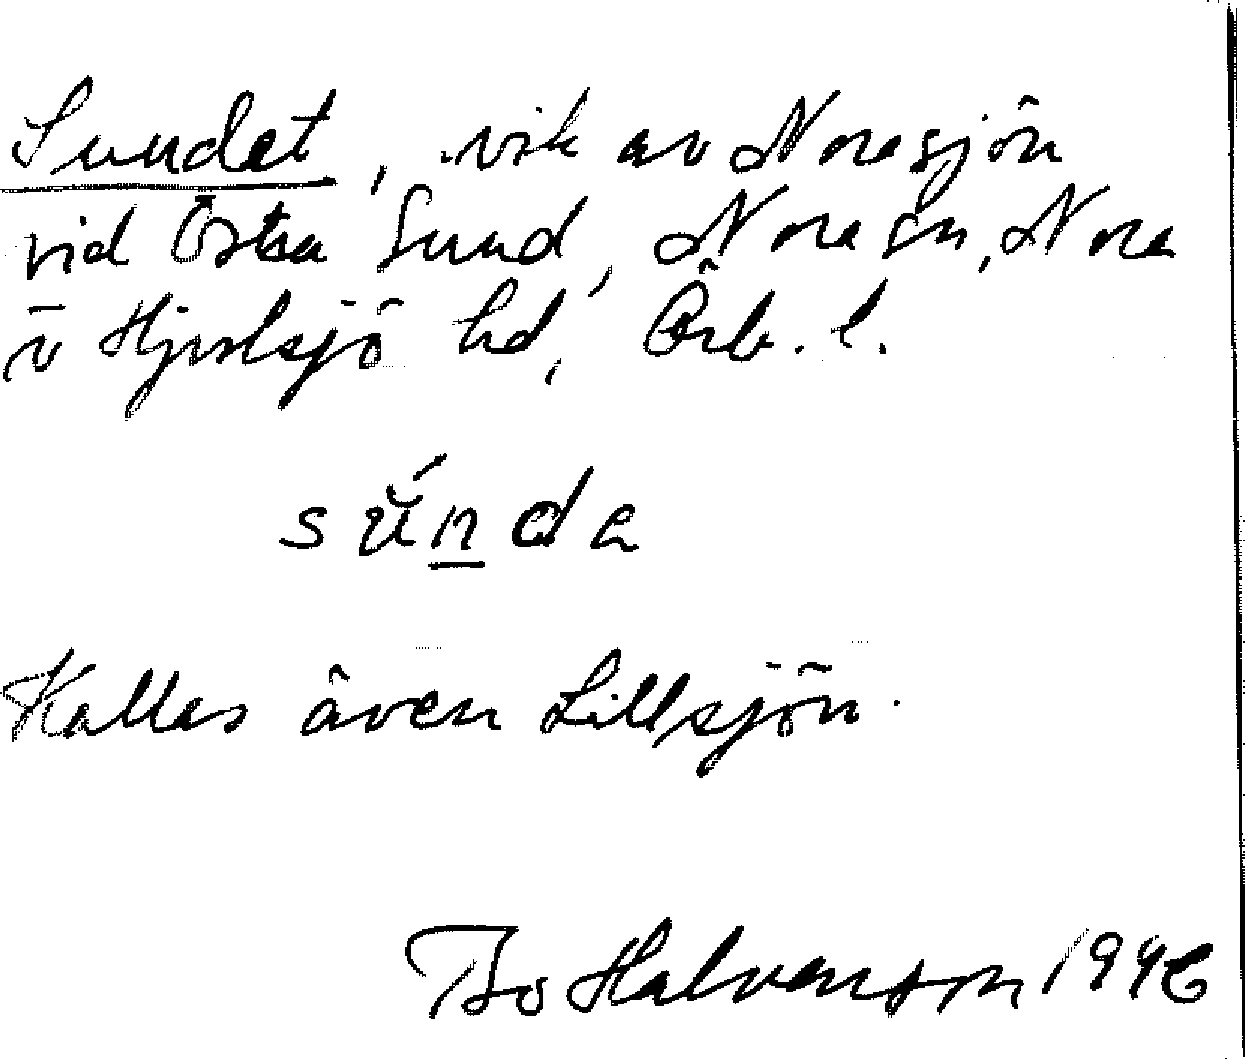 Sundet, vik av Norasjön
vid Östra Sund, Nora sn, Nora
o Hjulsjö hd, Örb. l.
súnda
Kallas även Lillsjön.
Bo Halvarsson 1946